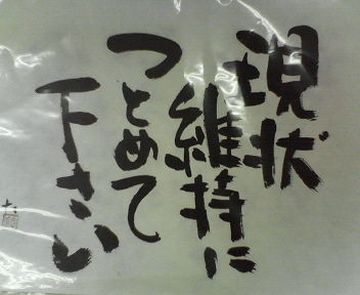 現状
維持に
つとめて
下さい